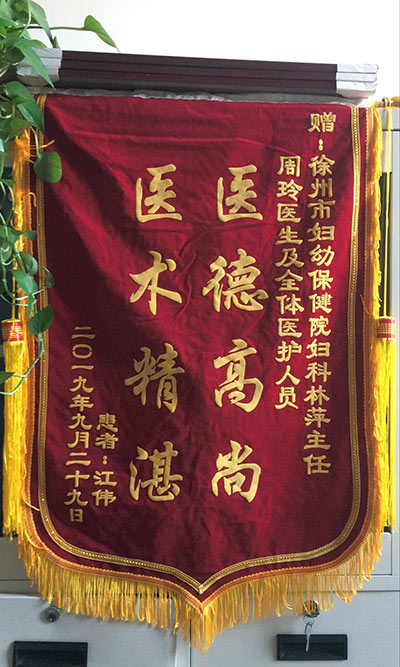 赠：徐州市妇幼保健院妇科林萍主任
周玲医生及全体医护人员
医德高尚
医术精湛
患者：江伟
二〇一九年九月二十九日